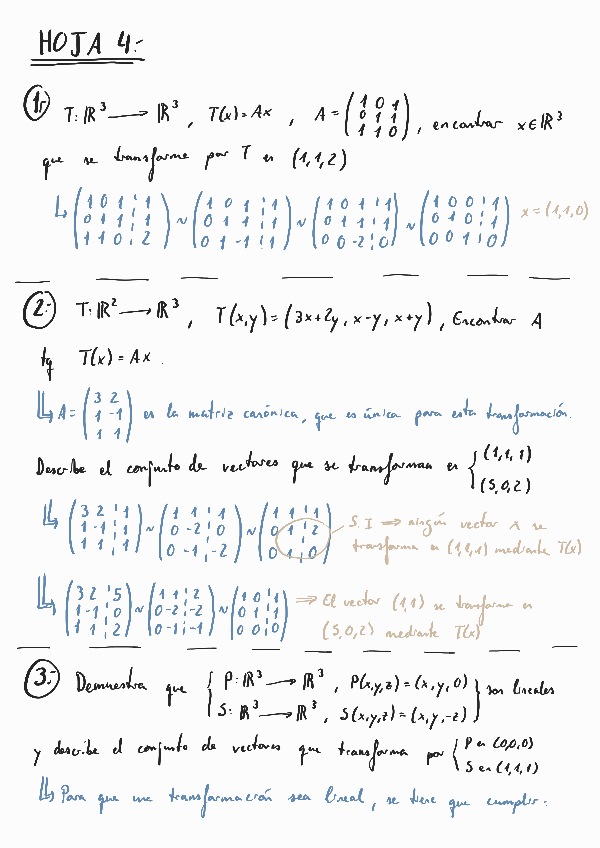 HOJA 4:-
1r T: ℝ³ → ℝ³ , T(x)=Ax , A = (1 0 1 / 0 1 1 / 1 1 0) , encontrar x∈ℝ³
que se transforme por T en (1,1,2)
↳ (1 0 1 ¦ 1 / 0 1 1 ¦ 1 / 1 1 0 ¦ 2) ~ (1 0 1 ¦ 1 / 0 1 1 ¦ 1 / 0 1 -1 ¦ 1) ~ (1 0 1 ¦ 1 / 0 1 1 ¦ 1 / 0 0 -2 ¦ 0) ~ (1 0 0 ¦ 1 / 0 1 0 ¦ 1 / 0 0 1 ¦ 0) x = (1,1,0)
2:- T: ℝ² → ℝ³ , T(x,y) = (3x+2y, x-y, x+y) , Encontrar A
tq T(x) = Ax .
↳ A = (3 2 / 1 -1 / 1 1) es la matriz canónica, que es única para esta transformación.
Describe el conjunto de vectores que se transforman en { (1,1,1) / (5,0,2)
↳ (3 2 ¦ 1 / 1 -1 ¦ 1 / 1 1 ¦ 1) ~ (1 1 ¦ 1 / 0 -2 ¦ 0 / 0 -1 ¦ -2) ~ (1 1 ¦ 1 / 0 1 ¦ 2 / 0 1 ¦ 0) S.I ⇒ ningún vector x se
transforma en (1,1,1) mediante T(x)
↳ (3 2 ¦ 5 / 1 -1 ¦ 0 / 1 1 ¦ 2) ~ (1 1 ¦ 2 / 0 -2 ¦ -2 / 0 -1 ¦ -1) ~ (1 0 ¦ 1 / 0 1 ¦ 1 / 0 0 ¦ 0) ⇒ El vector (1,1) se transforma en
(5,0,2) mediante T(x)
3:- Demuestra que { P: ℝ³ → ℝ³ , P(x,y,z) = (x,y,0) / S: ℝ³ → ℝ³ , S(x,y,z) = (x,y,-z) } son lineales
y describe el conjunto de vectores que transforma por { P en (0,0,0) / S en (1,1,1)
↳ Para que una transformación sea lineal, se tiene que cumplir: